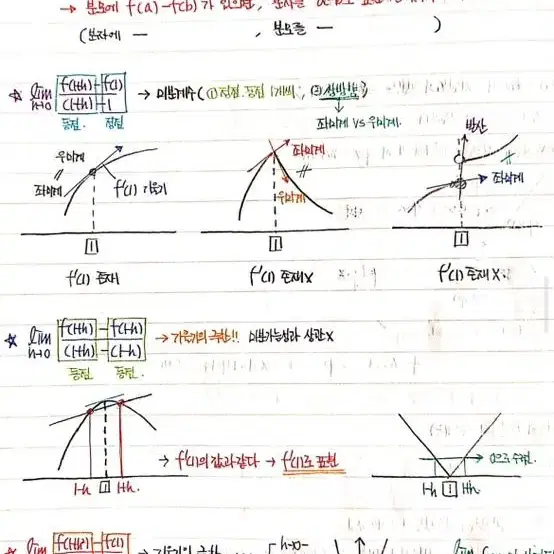 → 분모에 f(a)-f(b)가 있으면, 분자를
(분자에 — , 분모를 — )
☆ lim h→0 f(1+h)-f(1) / (1+h)-1 → 미분계수 (① 정점, 동점 1개씩, ② 쌍방향)
동점. 정점
좌미계 vs 우미계.
우미계
좌미계
f'(1) 기울기
1
f'(1) 존재
좌미계
우미계
1
f'(1) 존재 X
발산
좌미계
1
f'(1) 존재 X.
☆ lim h→0 f(1+h)-f(1-h) / (1+h)-(1-h) → 기울기의 극한!! 미분가능성과 상관 X
동점 동점.
1-h 1 1+h.
→ f'(1)의 값과 같다 → f'(1)로 표현
0으로 수렴.
1-h 1 1+h.
lim f(1+h)-f(1)